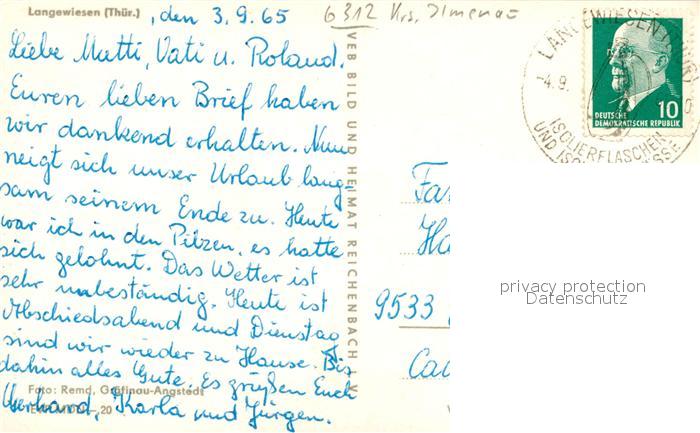 Langewiesen (Thür.)
, den 3.9.65
6312 Krs. Ilmenau
Liebe Mutti, Vati u. Roland.
Euren lieben Brief haben
wir dankend erhalten. Nun
neigt sich unser Urlaub lang-
sam seinem Ende zu. Heute
war ich in den Pilzen, es hatte
sich gelohnt. Das Wetter ist
sehr unbeständig. Heute ist
Abschiedsabend und Dienstag
sind wir wieder zu Hause. Bis
dahin alles Gute. Es grüßen Euch
Gerhard, Karla und Jürgen.
Foto: Remd, Gräfinau-Angstedt
20
VEB BILD UND HEIMAT REICHENBACH V
LANGEWIESEN (THÜR)
-4.9.
ISOLIERFLASCHEN
UND
DEUTSCHE
DEMOKRATISCHE REPUBLIK
10
Fa
Ha
9533
Ca
privacy protection
Datenschutz